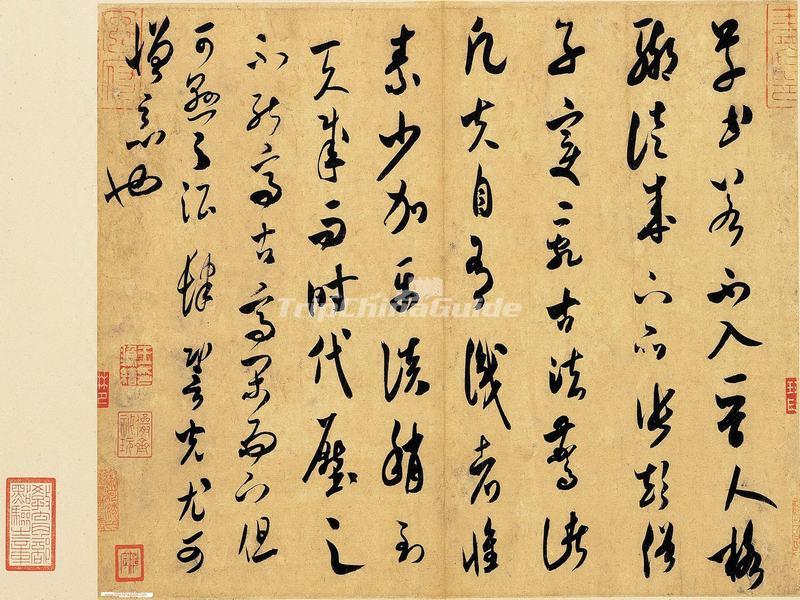 草書若不入晉人格
輒徒成下品張顛俗
子變亂古法驚諸
凡夫自有識者懷
素少加平淡稍到
天成而時代壓之
不能高古高閑而下但
可懸之酒肆䛒光尤可
憎惡也
TripChinaGuide